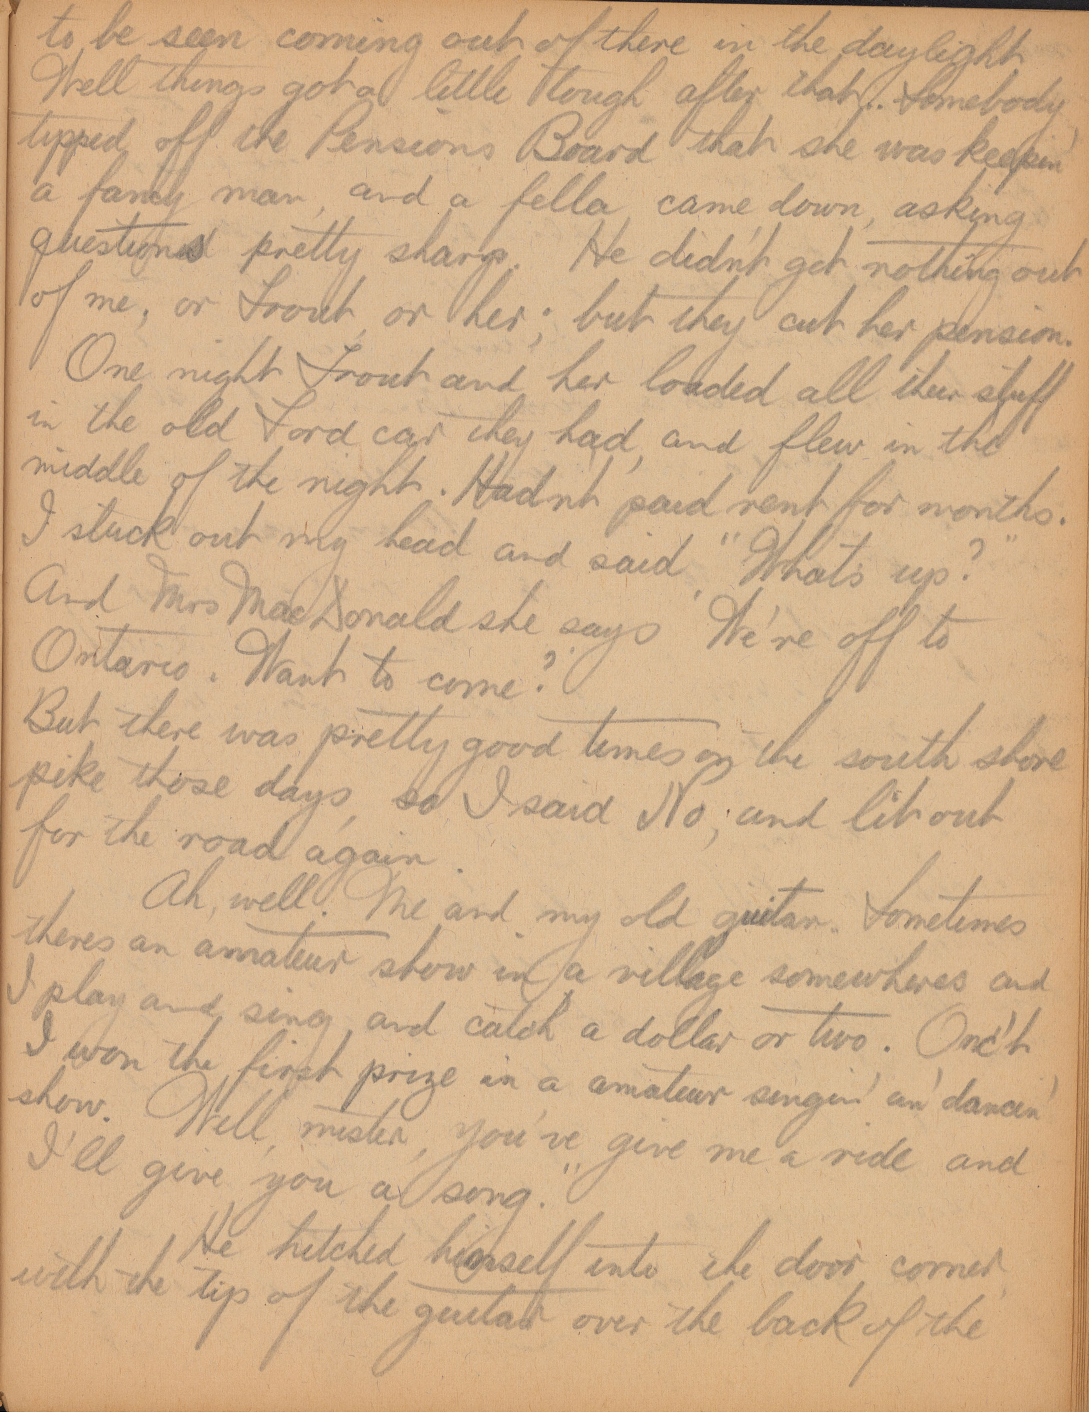 to be seen coming out of there in the daylight
Well things got a little tough after that.. Somebody
tipped off the Pensions Board that she was keepin'
a fancy man, and a fella came down, asking
questions pretty sharp. He didn't get nothing out
of me, or Trout, or her; but they cut her pension.
One night Trout and her loaded all their stuff
in the old Ford car they had, and flew in the
middle of the night. Hadn't paid rent for months.
I stuck out my head and said "What's up?"
And Mrs MacDonald she says 'We're off to
Ontario. Want to come?'
But there was pretty good times on the south shore
pike those days, so I said No; and lit out
for the road again.
Ah, well. Me and my old guitar. Sometimes
theres an amateur show in a village somewheres and
I play and sing and catch a dollar or two. Onc't
I won the first prize in a amateur singin' an' dancin'
show. Well, mister, you've give me a ride and
I'll give you a song."
He hitched himself into the door corner,
with the tip of the guitar over the back of the